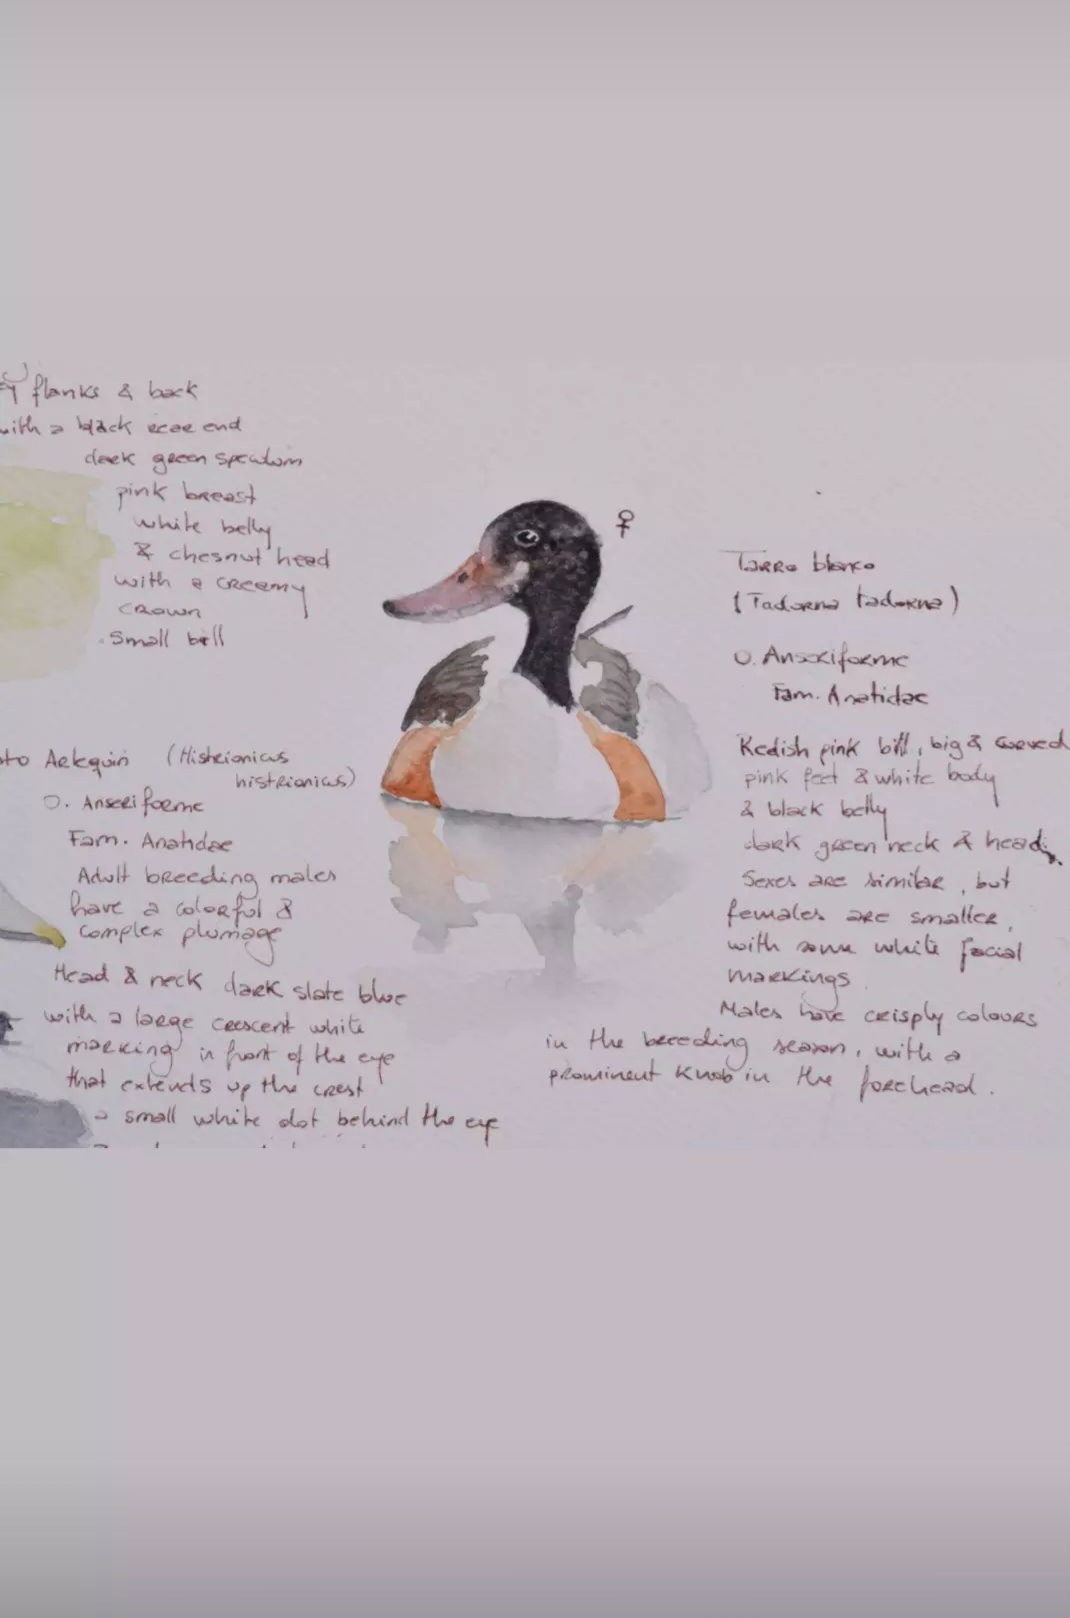 flanks & back
with a black rear end
dark green speculum
pink breast
white belly
& chesnut head
with a creamy
crown
. Small bill
♀
Tarro blanco
(Tadorna tadorna)
O. Anseriforme
Fam. Anatidae
Redish pink bill, big & curved
pink feet & white body
& black belly
dark green neck & head.
Sexes are similar, but
females are smaller,
with some white facial
markings.
Males have crisply colours
in the breeding season, with a
prominent knob in the forehead.
Arlequin (Histrionicus
histrionicus)
O. Anseriforme
Fam. Anatidae
Adult breeding males
have a colorful &
complex plumage
Head & neck dark slate blue
with a large crescent white
marking in front of the eye
that extends up the crest
a small white dot behind the eye